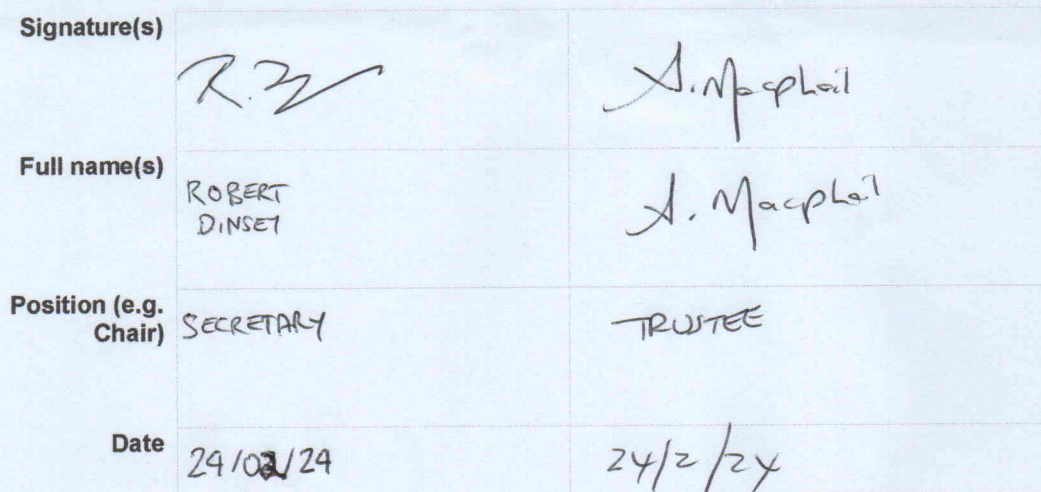 Signature(s)
A. Macphail
Full name(s)
ROBERT
DINSEY
A. Macphail
Position (e.g.
Chair)
SECRETARY
TRUSTEE
Date
24/02/24
24/2/24